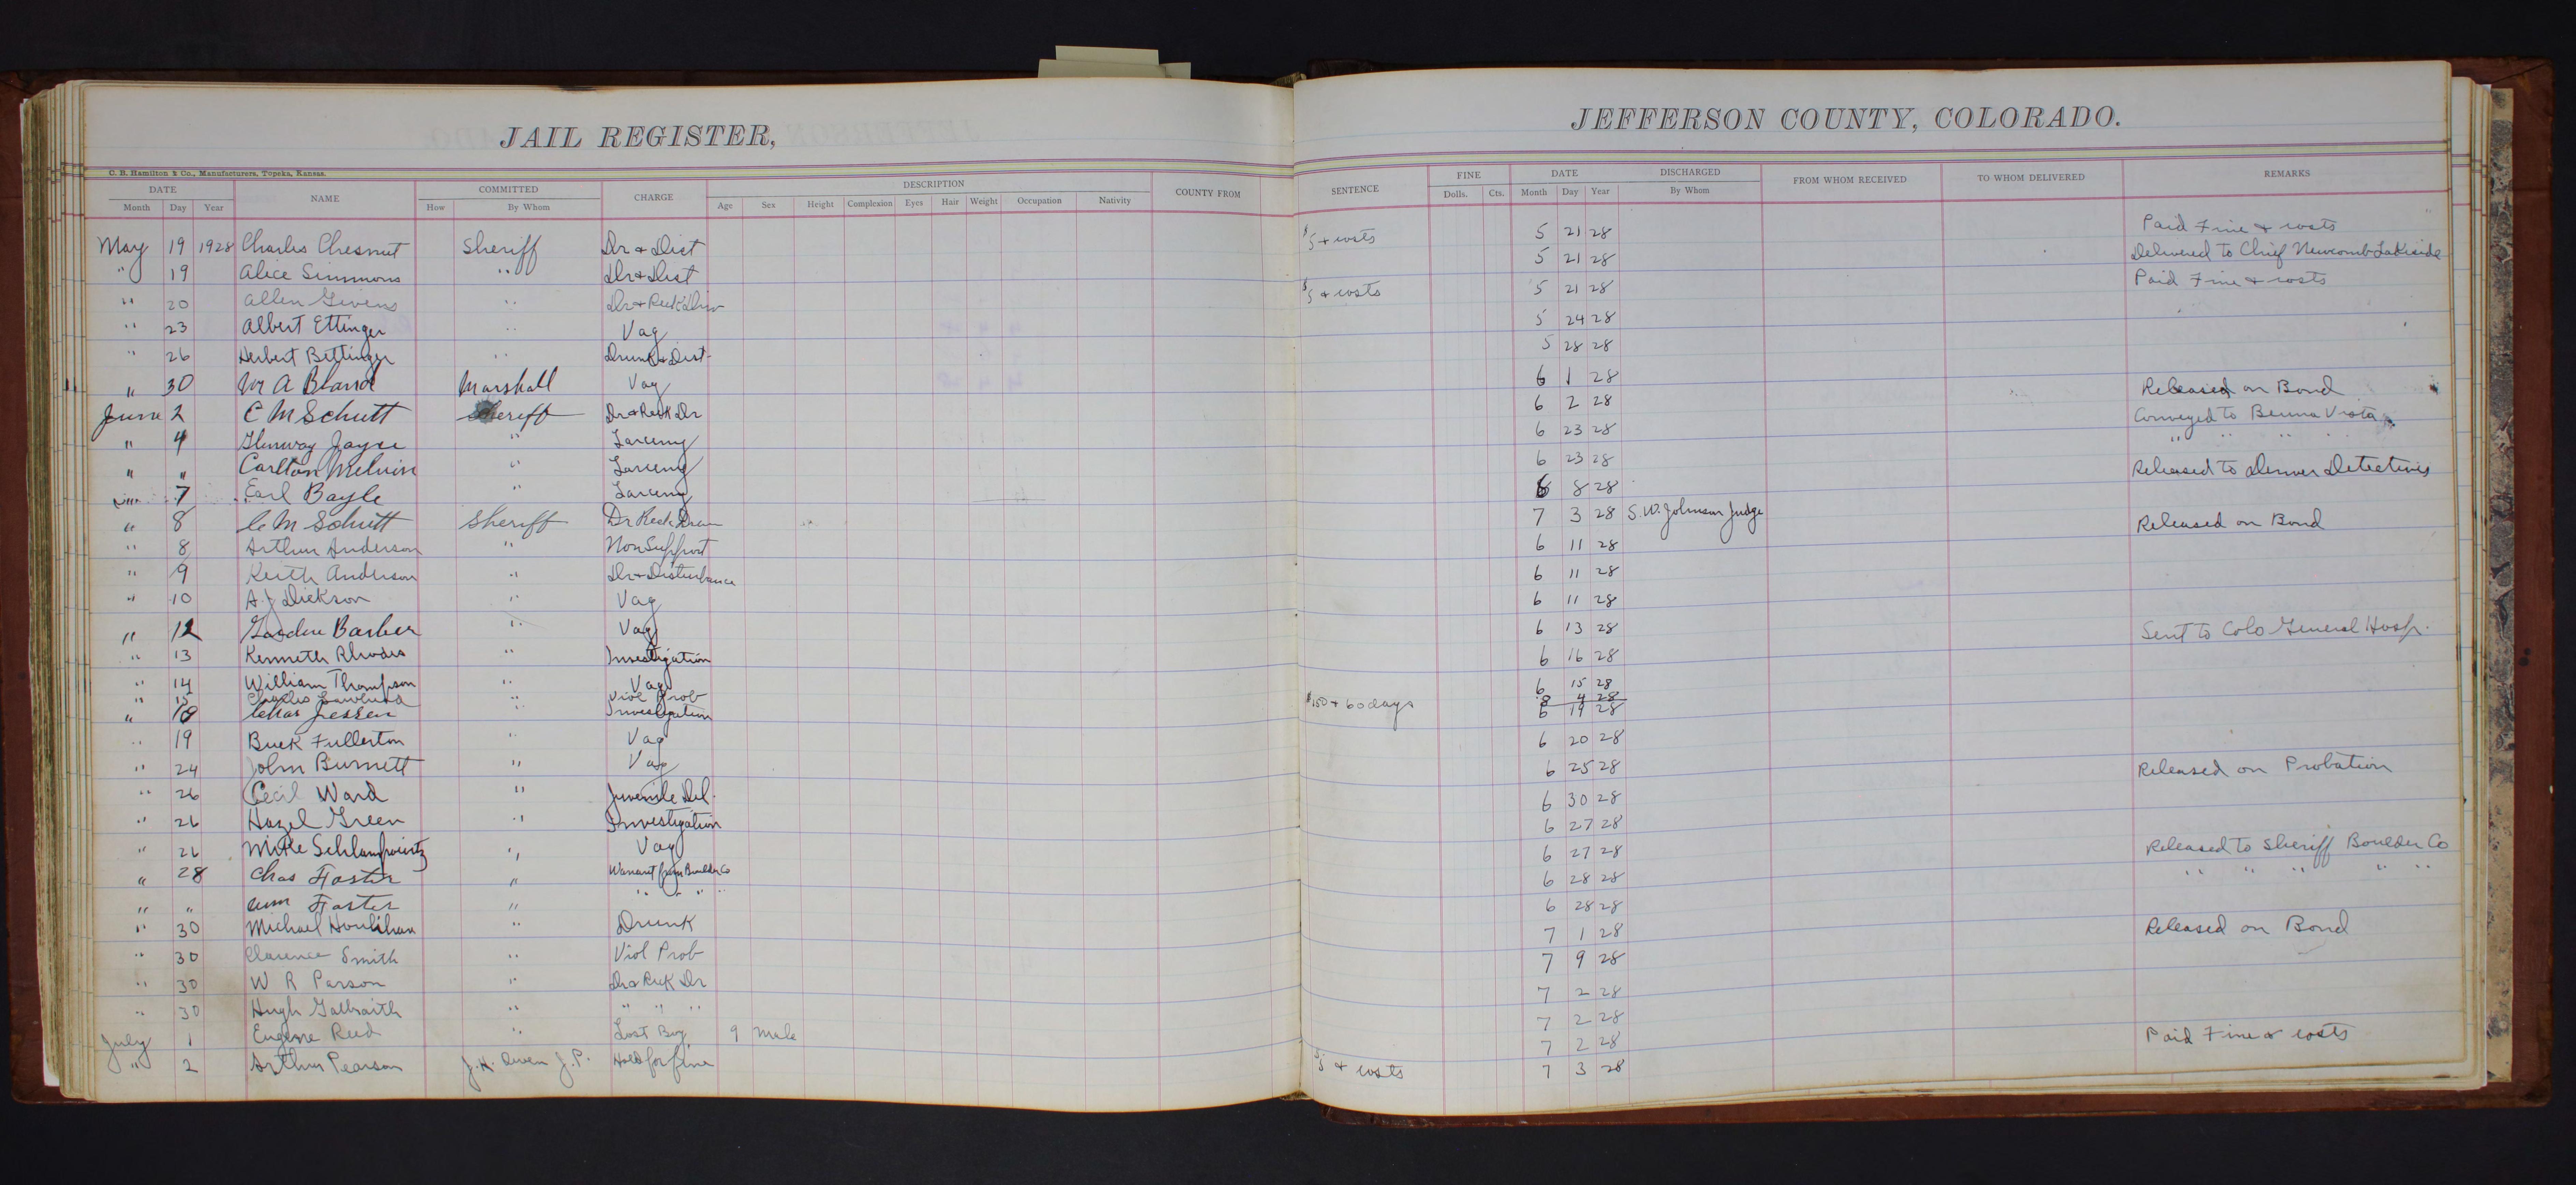 JAIL REGISTER,
JEFFERSON COUNTY, COLORADO.
C. B. Hamilton & Co., Manufacturers, Topeka, Kansas.
DATE NAME COMMITTED CHARGE DESCRIPTION COUNTY FROM SENTENCE FINE DATE DISCHARGED FROM WHOM RECEIVED TO WHOM DELIVERED REMARKS
Month Day Year How By Whom Age Sex Height Complexion Eyes Hair Weight Occupation Nativity Dolls. Cts. Month Day Year By Whom
May 19 1928 Charles Chesnut Sheriff Dr & Dist $5 & costs 5 21 28 Paid Fine & costs
" 19 Alice Simmons " Dr & Dist 5 21 28 Delivered to Chief Newcomb Lakeside
" 20 Allen Givens " Dr & Reck Driv $5 & costs 5 21 28 Paid Fine & costs
" 23 Albert Ettinger " Vag 5 24 28
" 26 Herbert Bettinger " Drunk & Dist 5 28 28
" 30 W A Bland Marshall Vag 6 1 28
June 2 C M Schutt Sheriff Dr & Reck Dr 6 2 28 Released on Bond
" 4 Glenway Jayne " Larceny 6 23 28 Conveyed to Beuna Vista
" " Carlton Melvin " Larceny 6 23 28 " " " "
" 7 Earl Bayle " Larceny 6 8 28 Released to Denver Detectives
" 8 C M Schutt Sheriff Dr Reck Dr 7 3 28 S. W. Johnson Judge
" 8 Arthur Anderson " Non Support 6 11 28 Released on Bond
" 9 Keith Anderson " Dr & Disturbance 6 11 28
" 10 A. J Dickson " Vag 6 11 28
" 12 Barber " Vag 6 13 28
" 13 Kenneth Rhodes " Investigation 6 16 28 Sent to Colo General Hosp.
" 14 William Thompson " Vag 6 15 28
" 15 Charles " Viol Prob $150 & 60 days 8 4 28
" 18 Chas Jessen " Investigation 6 19 28
" 19 Buck Fullerton " Vag 6 20 28
" 24 John Burnett " Vag 6 25 28
" 26 Cecil Ward " Juvenile Del. 6 30 28 Released on Probation
" 26 Hazel Green " Investigation 6 27 28
" 26 Mike " Vag 6 27 28
" 28 Chas Foster " Warrant from Boulder Co 6 28 28 Released to Sheriff Boulder Co
" " Wm Foster " " " " " 6 28 28 " " " " "
" 30 Michael Houlihan " Drunk 7 1 28
" 30 Clarence Smith " Viol Prob 7 9 28 Released on Bond
" 30 W R Parson " Dr & Reck Dr 7 2 28
" 30 Hugh Galbraith " " " " 7 2 28
July 1 Eugene Reed " Lost Boy 9 Male 7 2 28
" 2 Arthur Pearson J. H. Owen J. P. Held for fine $5 & costs 7 3 28 Paid Fine & costs